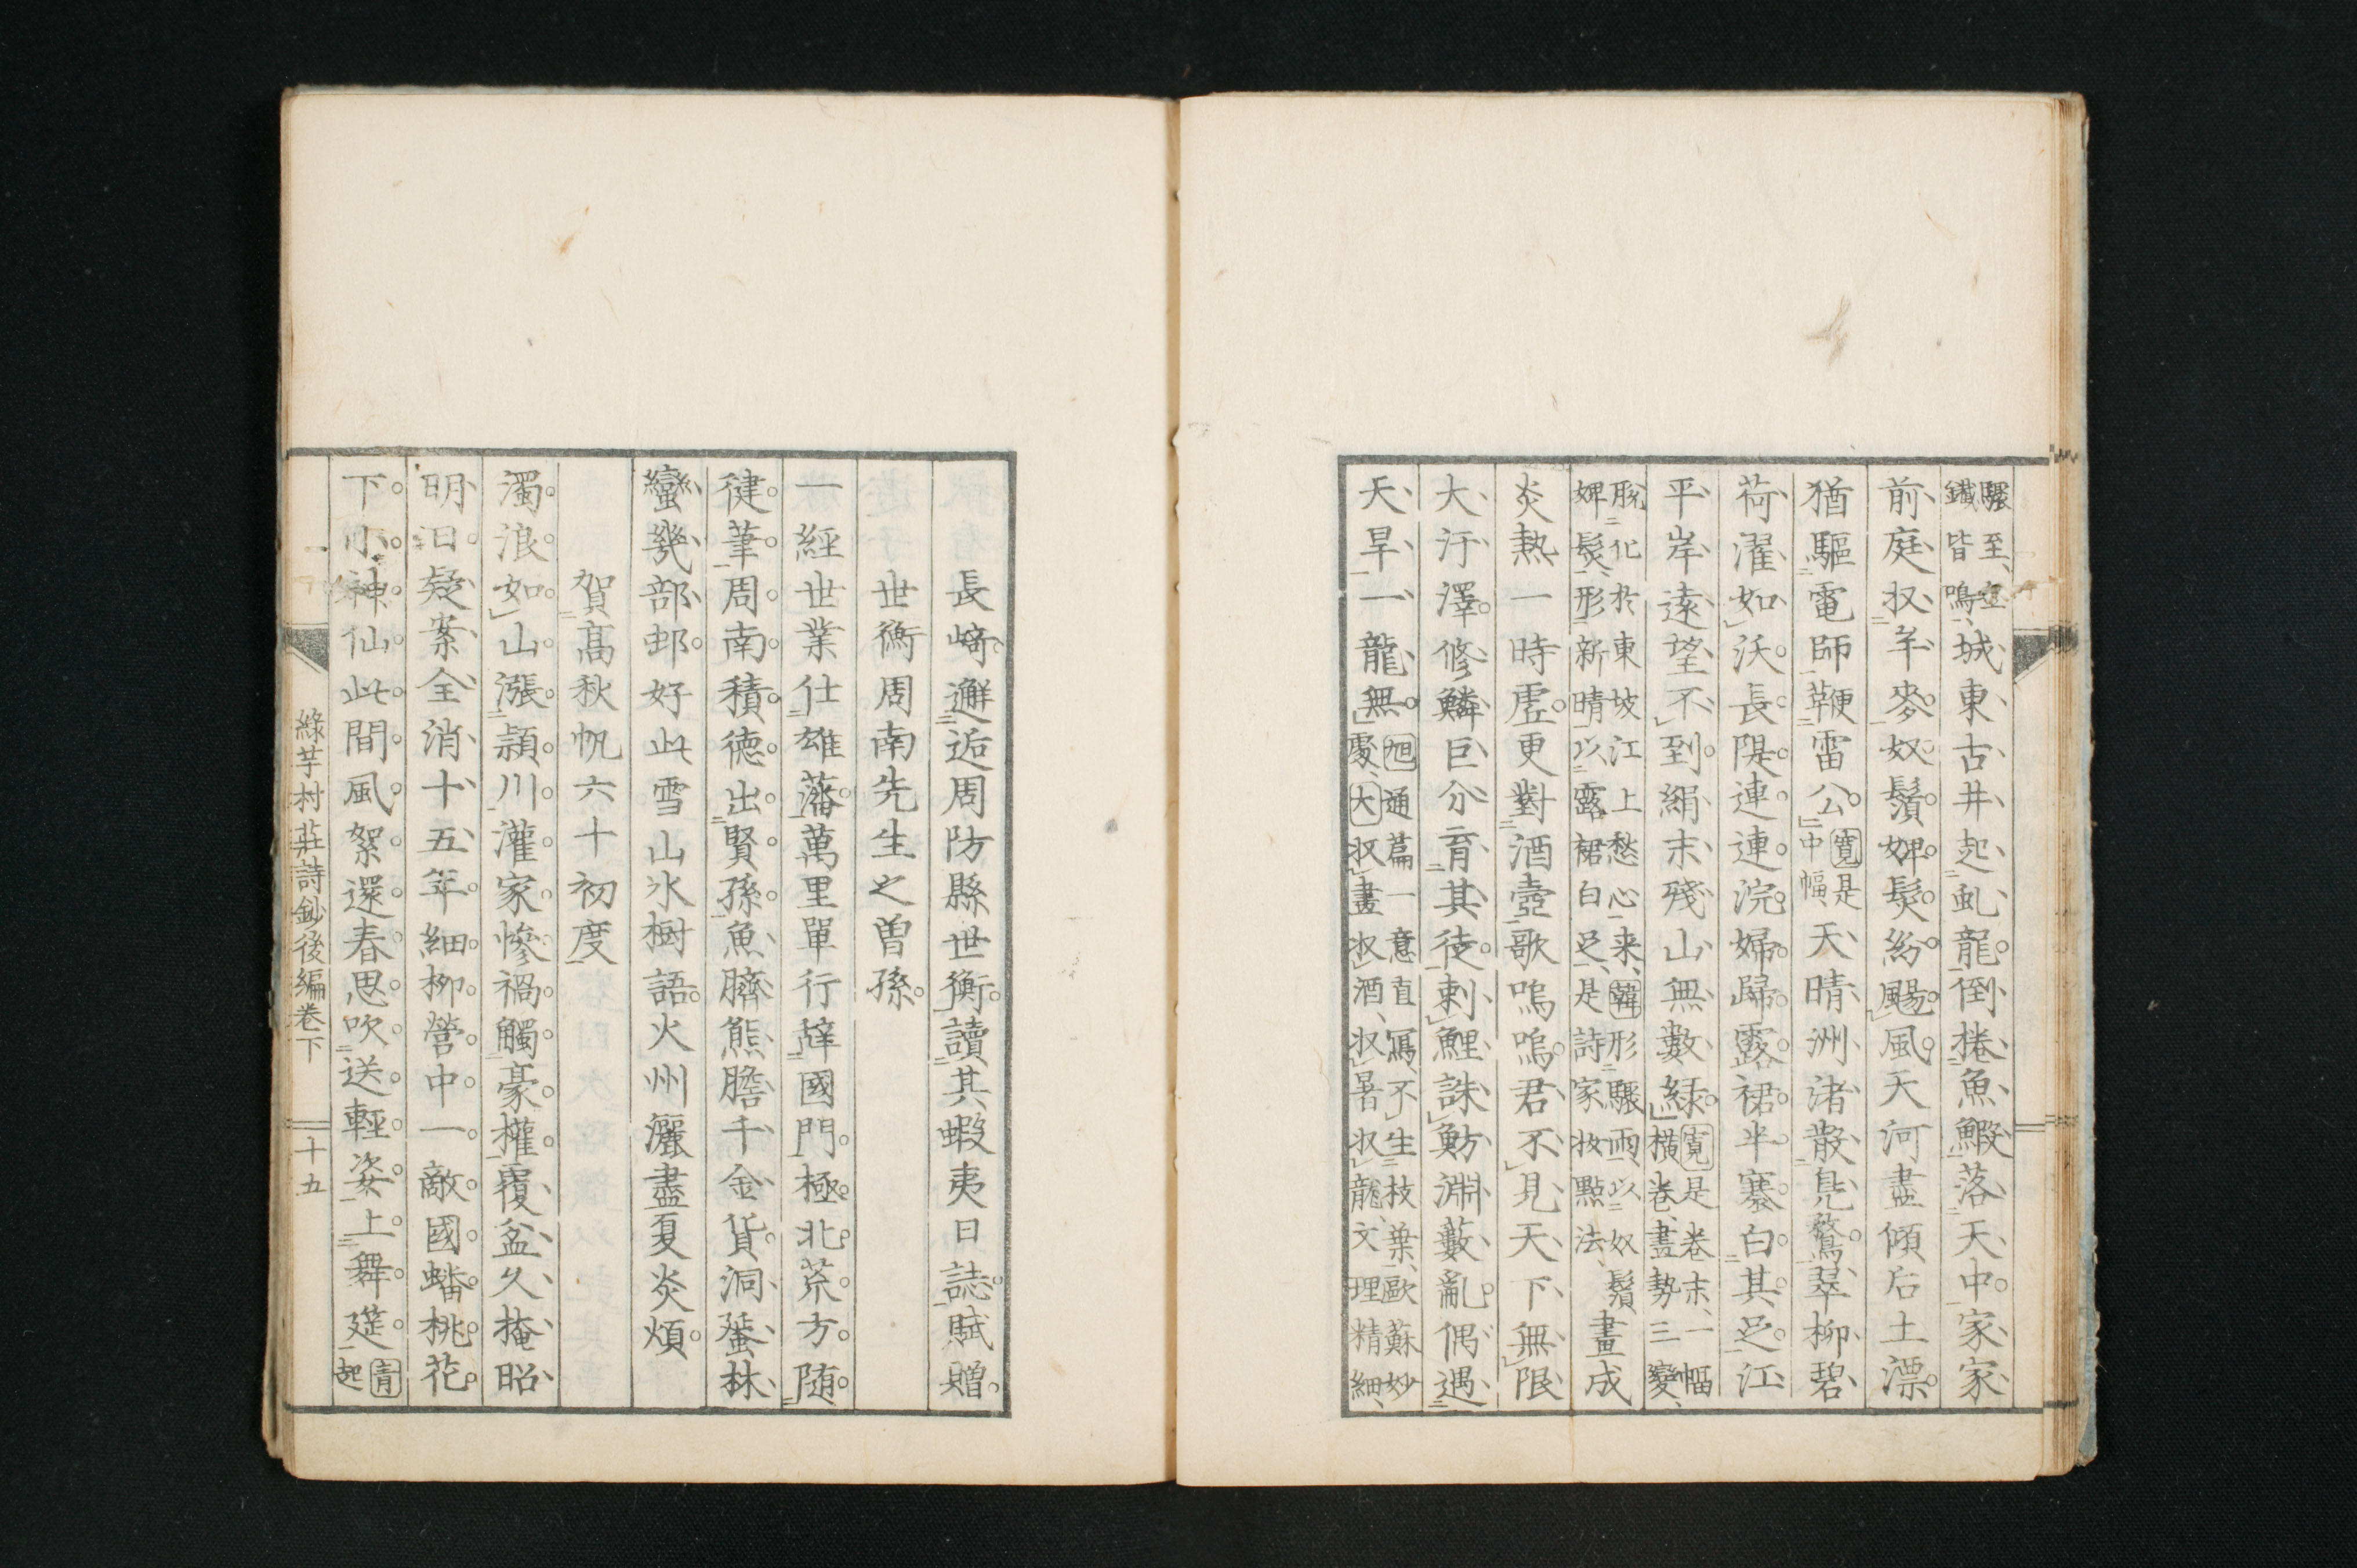 驟至、
鐵皆鳴、城東古井起虬龍倒捲魚鰕落天中家家
前庭収芉麥奴鬚婢髮紛颺風天河盡傾后土漂
猶驅電師鞭雷公寛是
中幅、天晴洲渚散鳧鷖翠柳碧
荷濯如沃長隄連連浣婦歸露裙半褰白其足江
平岸遠望不到絹末殘山無數緑寛是卷末、一幅
横卷、畫勢三變、
脱化於東坡江上愁心来、韓形驟雨以奴鬚
婢髮、形新晴以露裙白足、是詩家妝點法、畫成
炎熱一時虚更對酒壺歌嗚嗚君不見天下無限
大汙澤修鱗巨介育其徒刺鯉誅魴淵藪亂偶遇
天旱一龍無旭通篇一意直寫、不生枝葉、歐蘇妙
處、大収畫収酒、収暑収龍、文理精細、
長﨑邂逅周防縣世衡讀其蝦夷日誌賦贈
世衡周南先生之曽孫
一經世業仕雄藩萬里單行辭國門極北荒方随
健筆周南積徳出賢孫魚臍熊膽千金貨洞蜑林
蠻幾部邨好此雪山氷樹語火州灑盡夏炎煩
賀高秋帆六十初度
濁浪如山漲潁川灌家惨禍觸豪權覆盆久掩昭
明日疑案全消十五年細柳營中一敵國蟠桃花
下小神仙此間風絮還春思吹送輕姿上舞筵青
起
緑芋村莊詩鈔後編卷下
十五